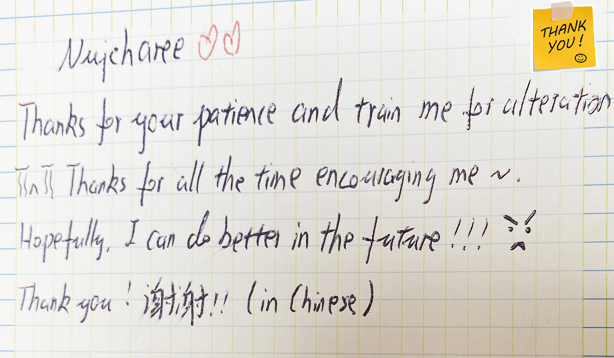 Nujcharee ♡♡
THANK
YOU!
Thanks for your patience and train me for alteration
Thanks for all the time encouraging me ~.
Hopefully, I can do better in the future!!!
Thank you! 謝謝!! (in Chinese)